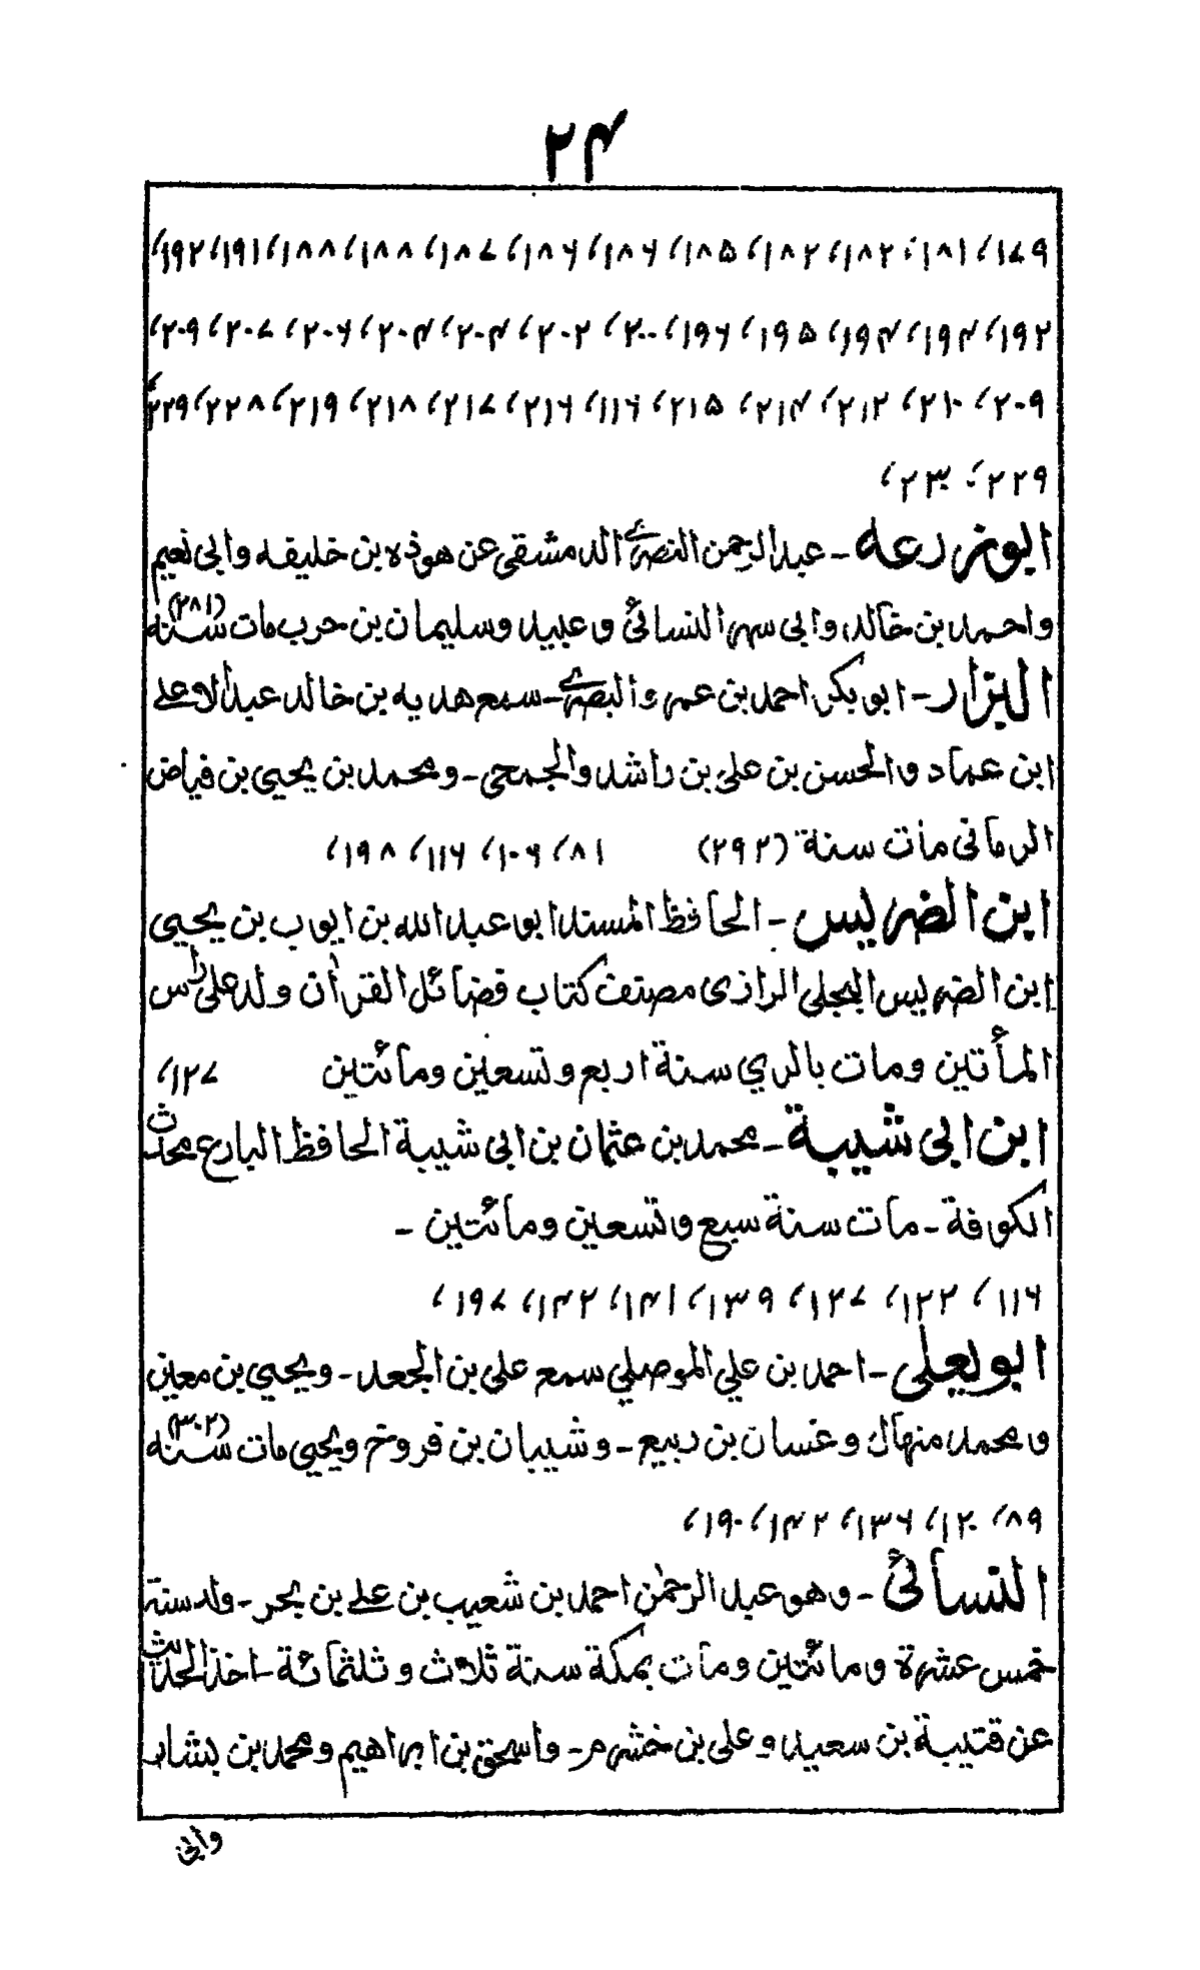 ۲۴
۱۷۹، ۱۸۱، ۱۸۲، ۱۸۲، ۱۸۵، ۱۸۶، ۱۸۶، ۱۸۷، ۱۸۸، ۱۸۸، ۱۹۱، ۱۹۲،
۱۹۲، ۱۹۴، ۱۹۴، ۱۹۵، ۱۹۶، ۲۰۰، ۲۰۲، ۲۰۴، ۲۰۴، ۲۰۶، ۲۰۷، ۲۰۹،
۲۰۹، ۲۱۰، ۲۱۲، ۲۱۴، ۲۱۵، ۱۱۶، ۲۱۶، ۲۱۷، ۲۱۸، ۲۱۹، ۲۲۸، ۲۲۹،
۲۲۹، ۲۳۰،
ابوزرعه - عبدالرحمن النصری الدمشقی عن هوذه بن خلیفه وابی نعیم
واحمد بن خالد وابی سهر النسائی وعبید وسلیمان بن حرب مات سنة (۲۸۱)
البزار - ابو بکر احمد بن عمرو البصری - سمع هدیه بن خالد عبدالاعلے
ابن عماد والحسن بن علی بن راشد والجمحی - ومحمد بن یحیی بن فیاض
الرمانی مات سنة (۲۹۲) ۸۱، ۱۰۶، ۱۱۶، ۱۹۸،
ابن الضریس - الحافظ المسند ابو عبد الله بن ایوب بن یحیی
ابن الضریس البجلی الرازی مصنف کتاب فضائل القرأن ولد علی راس
المأتین ومات بالري سنة اربع وتسعین ومائتین ۱۲۷،
ابن ابی شیبة - محمد بن عثمان بن ابی شیبة الحافظ البارع محدث
الکوفة - مات سنة سبع وتسعین ومائتین -
۱۱۶، ۱۲۲، ۱۲۷، ۱۳۹، ۱۴۱، ۱۴۲، ۱۹۷،
ابو یعلی - احمد بن علي الموصلي سمع علی بن الجعد - ویحیی بن معین
ومحمد منهال وغسان بن ربیع - وشیبان بن فروخ ویحیی مات سنة (۳۰۲)
۸۹، ۱۲۰، ۱۳۶، ۱۴۲، ۱۹۰،
النسائی - وهو عبد الرحمٰن احمد بن شعیب بن علے بن بحر - ولد سنة
خمس عشرة ومائتین ومات بمکة سنة ثلاث وثلثمائة - اخذ الحدیث
عن قتیبة بن سعید وعلی بن خشرم - واسحق بن ابراهیم ومحمد بن بشار